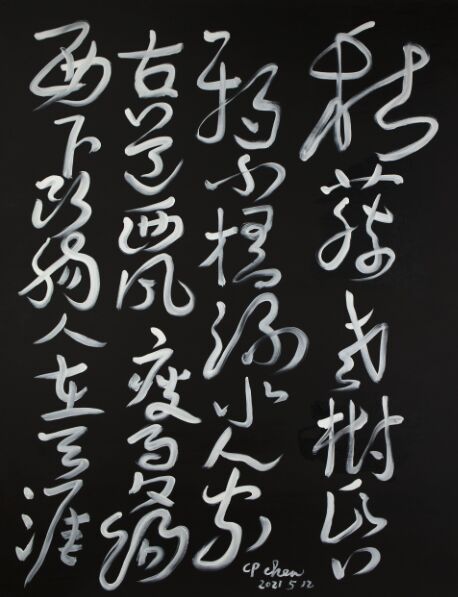 枯藤老樹昏
鴉小橋流水人家
古道西風瘦馬夕陽
西下斷腸人在天涯
CP Chen
2021 5 12